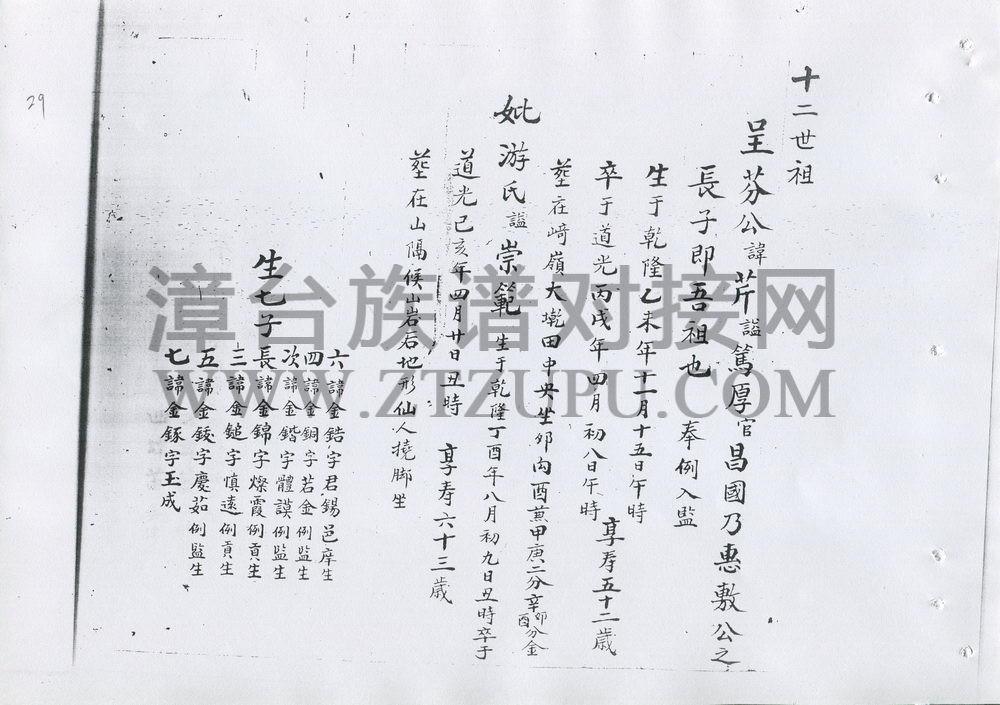 十二世祖
呈芬公諱芹謚篤厚官昌國乃惠敷公之
長子即吾祖也 奉例入監
生于乾隆乙未年十二月十五日午時
卒于道光丙戌年四月初八日午時 享寿五十二歲
塟在崎嶺大墘田中央坐卯向酉兼甲庚二分辛卯辛酉分金
妣游氏謚崇範生于乾隆丁酉年八月初九日丑時卒于
道光己亥年四月廿日丑時 享寿六十三歲
塟在山隔候山岩后地形仙人撓脚坐
生七子
六諱金鋯字君錫邑庠生
四諱金銅字若金例監生
次諱金鍇字體謨例監生
長諱金錦字燦霞例貢生
三諱金鎚字慎遠例貢生
五諱金錂字慶茹例監生
七諱金鋉字玉成
29
漳台族谱对接网
WWW.ZTZUPU.COM